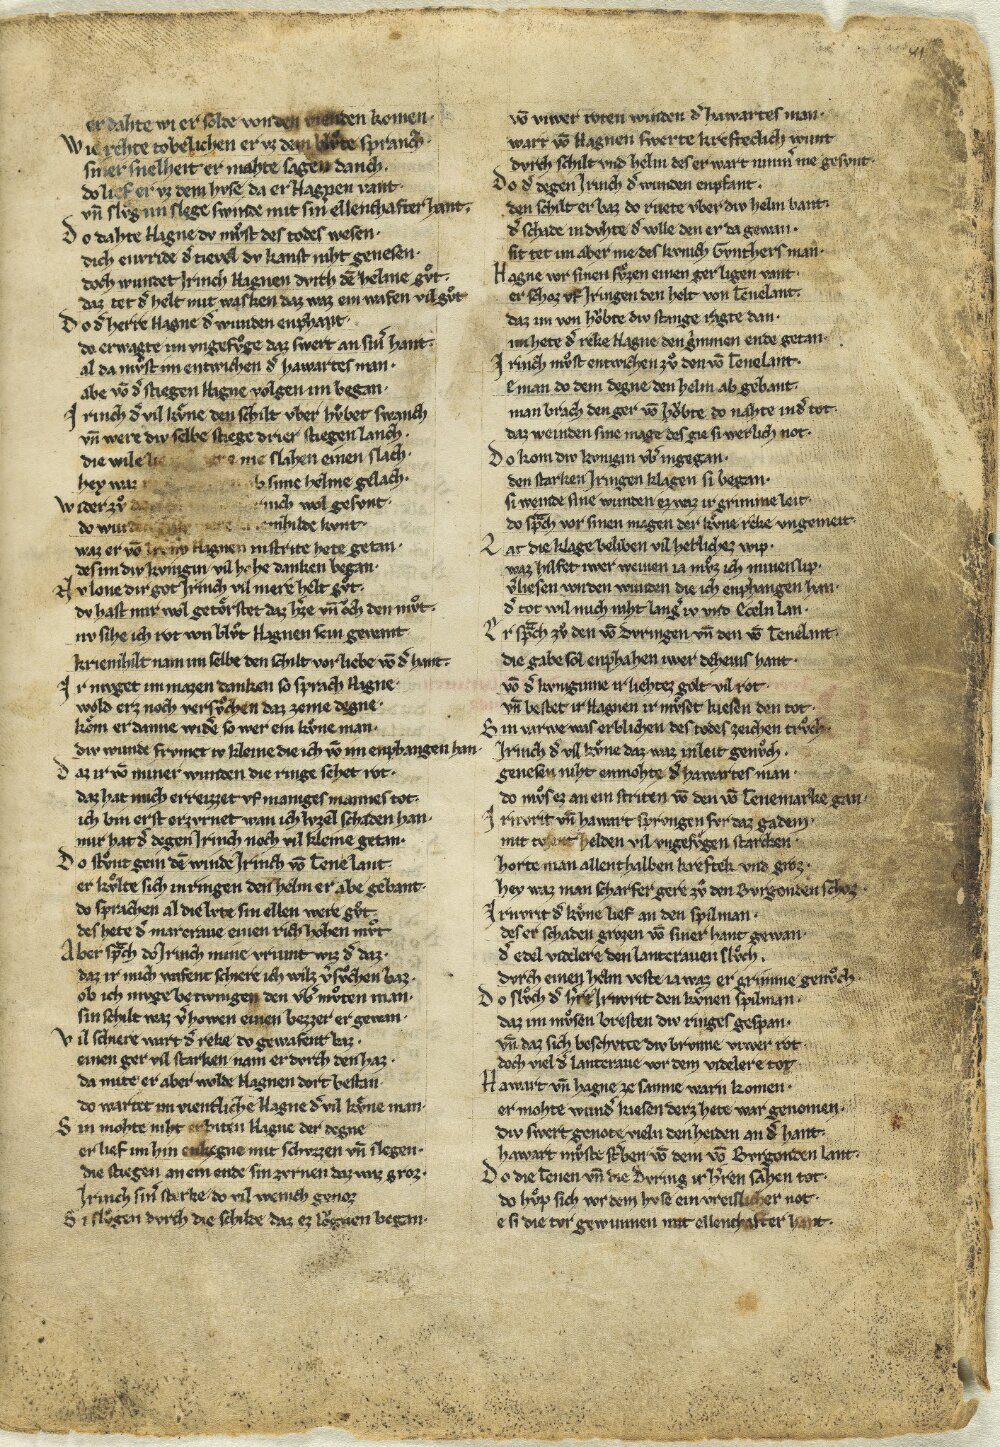 41
er dahte wi er solde von den vienden komen·
Wie rehte tobelichen er vz dem blůte spranch·
siner snelheit er mahte sagen danch·
do lief er vz dem hvse da er Hagnen vant·
vn̄ slůg im slege swinde mit sin̾ ellenthafter hant·
Do dahte Hagne dv mv̊st des todes wesen·
dich envride d̾ tievel dv kanst niht genesen·
doch wundet Jrinch Hagnen dvrch dē helme gůt·
daz tet d̾ helt mit wasken daz waz ein wafen vil gůt
Do d̾ herre Hagne d̾ wunden enphant·
do erwagte im vngefv̊ge daz swert an sin̾ hant·
al da mv̊st im entwichen d̾ hawartes man·
abe vō d̾ stiegen Hagne volgen im began·
Jrinch d̾ vil kv̊ne den schilt vber hŏbet swanch
vn̄ were div selbe stiege drier stiegen lanch·
die wile nie slahen einen slach·
hey waz sime helme gelach·
Wider zv̊ rinch wol gesvnt·
do wurden mhilde kvnt·
waz er vō Hagnen in strite hete getan·
des im div kvnigin vil hohe danken began·
Nv lone dir got Jrinch vil mere helt gůt·
dv hast mir wol getrŏstet daz h̾ze vn̄ ŏch den mv̊t·
nv sihe ich rot von blv̊t Hagnen sein gewant
kriemhilt nam im selbe den schilt vor liebe vō d̾ hant·
Jr mvget im mazen danken so sprach Hagne·
wold erz noch versv̊chen daz zeme degne·
kŏm er danne wid̾e so wer ein kv̊ne man·
div wunde frvmet iv kleine die ich vō im enphangen han·
Daz ir vō miner wunden die ringe sehet rot·
daz hat mich erreizzet vf maniges mannes tot·
ich bin erst erzvrnet wan ich lvzel schaden han·
mir hat d̾ degen Jrinch noch vil kleine getan·
Do stv̊nt gein dē winde Jrinch vō Tene lant·
er kv̊lte sich in ringen den helm er abe gebant·
do sprachen al die lvte sin ellen were gůt·
des hete d̾ marcraue einen rich hohen mv̊t
Aber sp̄ch do Jrinch mine vriunt wiz d̾ daz·
daz ir mich wafent schiere ich wilz v̾sv̊chen baz·
ob ich mvge betwingen den vb̾ mv̊ten man·
sin schilt waz v̾howen einen bezzer er gewan·
Vil schiere wart d̾ reke do gewafent baz·
einen ger vil starken nam er dvrch den haz·
da mite er aber wolde Hagnen dort bestan
do wartet im vientliche Hagne d̾ vil kv̊ne man·
Sin mohte niht erbiten Hagne der degne
er lief im hin enkegne mit schvzzen vn̄ slegen·
die stiegen an ein ende sin zvrnen daz waz groz·
Jrinch sin̾ sterke do vil wenich genoz
Si slv̊gen dvrch die schilde daz ez lŏgnen began·
vō viwer roten winden d̾ hawartes man·
wart vō Hagnen swerte krefteclich wunt
dvrch schilt vnd helm des er wart nimm̾ me gesvnt·
Do d̾ degen Jrinch d̾ wunden enpfant·
den schilt er baz do ruete vber div helm bant·
d̾ schade in dvhte d̾ volle den er da gewan·
sit tet im aber me des kvnich Gvnthers man·
Hagne vor sinen fv̊zen einen ger ligen vant
er schoz vf Jringen den helt von Tenelant·
daz im von hŏbte div stange ragte dan·
im hete d̾ reke Hagne den grimmen ende getan·
Jrinch mv̊st entwichen zv̊ den vō Tenelant·
e man do dem degne den helm ab gebant·
man brach den ger vō hŏbte do nahte in d̾ tot·
daz weinden sine mage des gie si werlich not·
Do kom div kvnigin vb̾ in gegan·
den starken Jringen klagen si began·
si weinde sine wunden ez waz ir grimme leit·
do sp̄ch vor sinen magen der kv̊ne reke vngemeit·
Lat die klage beliben vil herlichez wip·
waz hilfet iwer weinen ia mv̊z ich minen lip·
v̾liesen von den wunden die ich enphangen han·
d̾ tot wil mich niht lang̾ iv vnd Eceln lan·
Er sp̄ch zv̊ den vō Dvringen vn̄ den vō Tenelant·
die gabe sol enphahen iwer deheins hant·
vō d̾ kvniginne ir liehtez golt vil rot·
vn̄ bestet ir Hagnen ir mv̊zet kiesen den tot·
Sin varwe was erblichen des todes zeichen trv̊ch·
Jrinch d̾ vil kv̊ne daz waz in leit genv̊ch·
genesen niht enmohte d̾ hawartes man·
do mv̊s ez an ein striten vō den vō Tenemarke gan·
Jrnvrit vn̄ hawart sprvngen fvr daz gadem·
mit tvsent helden vil vngefv̊gen starcken
horte man allenthalben kreftek vnd groz·
hey waz man scharfer gere zv̊ den Bvrgonden schoz
Jrnvrit d̾ kv̊ne lief an den spilman·
des er schaden grozen vō siner hant gewan·
d̾ edel videlere den lantcrauen slv̊ch·
dvrch einen helm veste ia waz er grimme genv̊ch·
Do slv̊ch d̾ h̾re Jrnvrit den kv̊nen spilman·
daz im mv̊sen bresten div ringes gespan·
vn̄ daz sich beschvtte div brvnne viwer rot·
doch viel d̾ lantcraue vor dem videlere tot·
Hawart vn̄ hagne ze samne warn komen·
er mohte wund̾ kiesen derz hete war genomen·
div swert genote vieln den helden an d̾ hant·
hawart mv̊ste st̾ben vō dem vō Bvrgonden lant·
Do die Tenen vn̄ die Dvring ir h̾ren sahen tot·
do hv̊p sich vor dem hvse ein vreislicher not·
e si die tvr gewunnen mit ellenthafter hant·